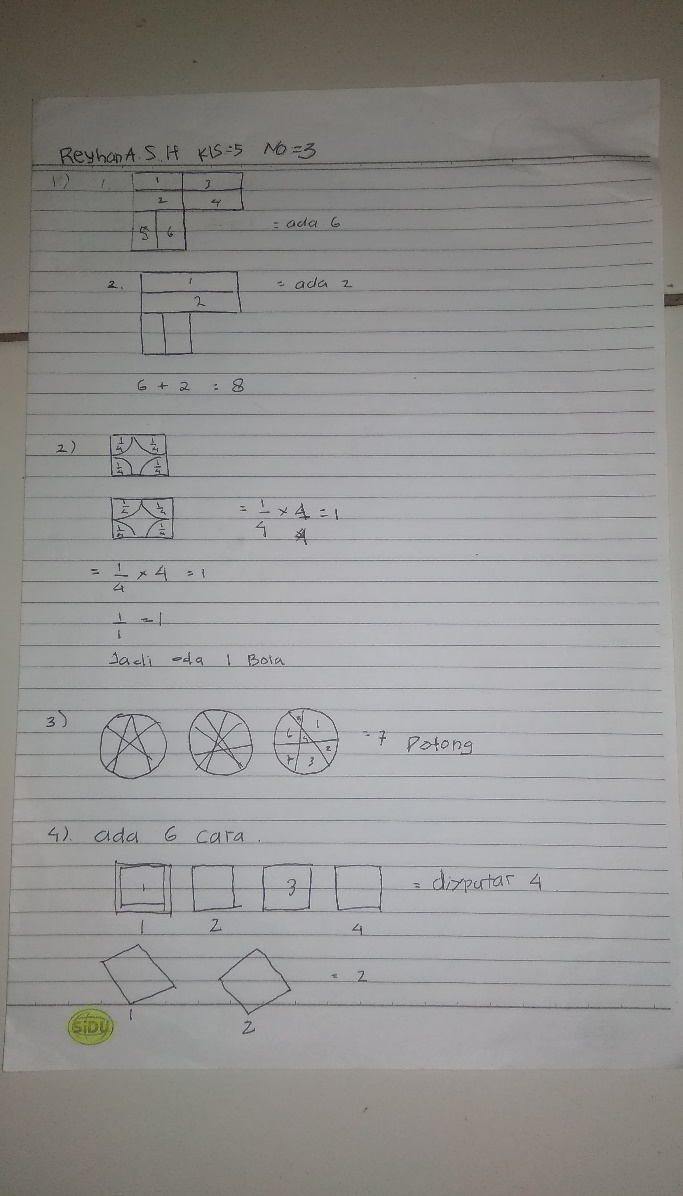 Reyhan A. S. H Kls=5 No=3
1) 1. 1 3
2 4
5 6 = ada 6
2. 1 = ada 2
2
6 + 2 = 8
2) 1/4 1/4
1/4 1/4
1/4 1/4
1/4 1/4 = 1/4 × 4 = 1
= 1/4 × 4 = 1
1/1 = 1
Jadi ada 1 Bola
3) 5 1 6 4 2 7 3 = 7 Potong
4). ada 6 cara.
1 3 = diputar 4
1 2 4
= 2
1 2
SiDU